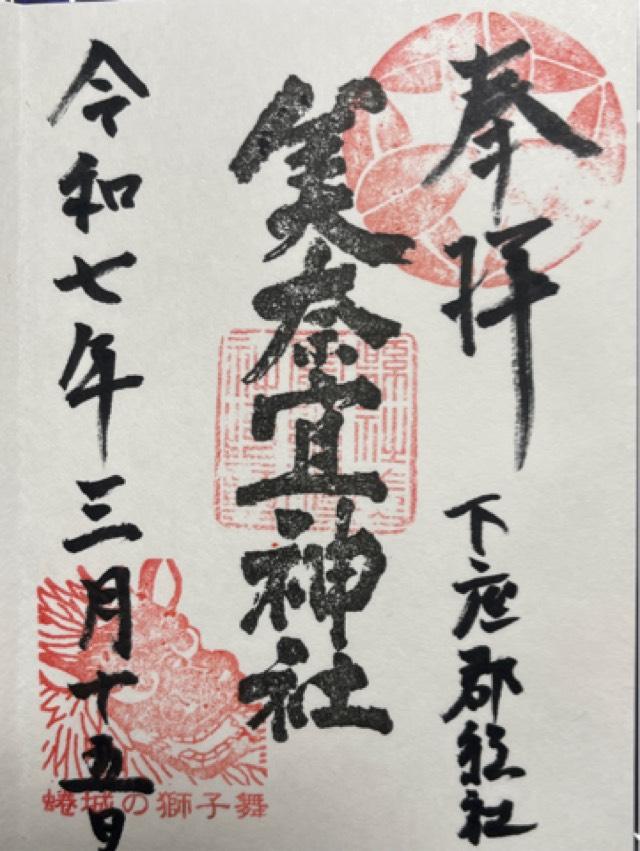 奉拝
下座郡総社
美奈宜神社
令和七年三月十五日
蜷城の獅子舞